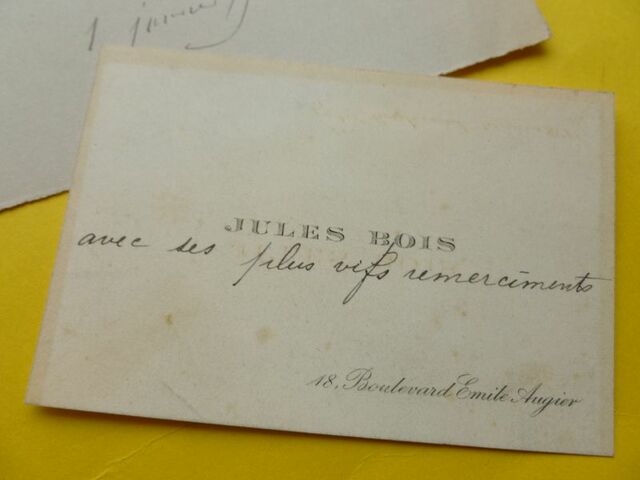 1
JULES BOIS
avec ses plus vifs remerciments
18, Boulevard Emile Augier